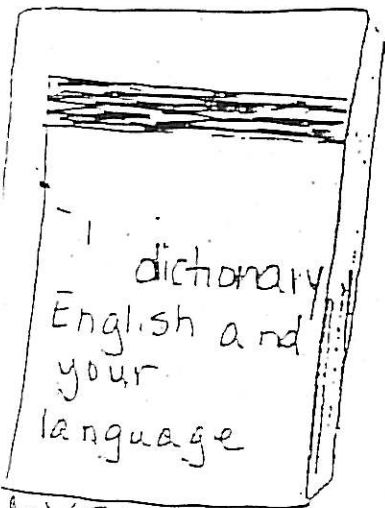 1
dictionary
English and
your
language